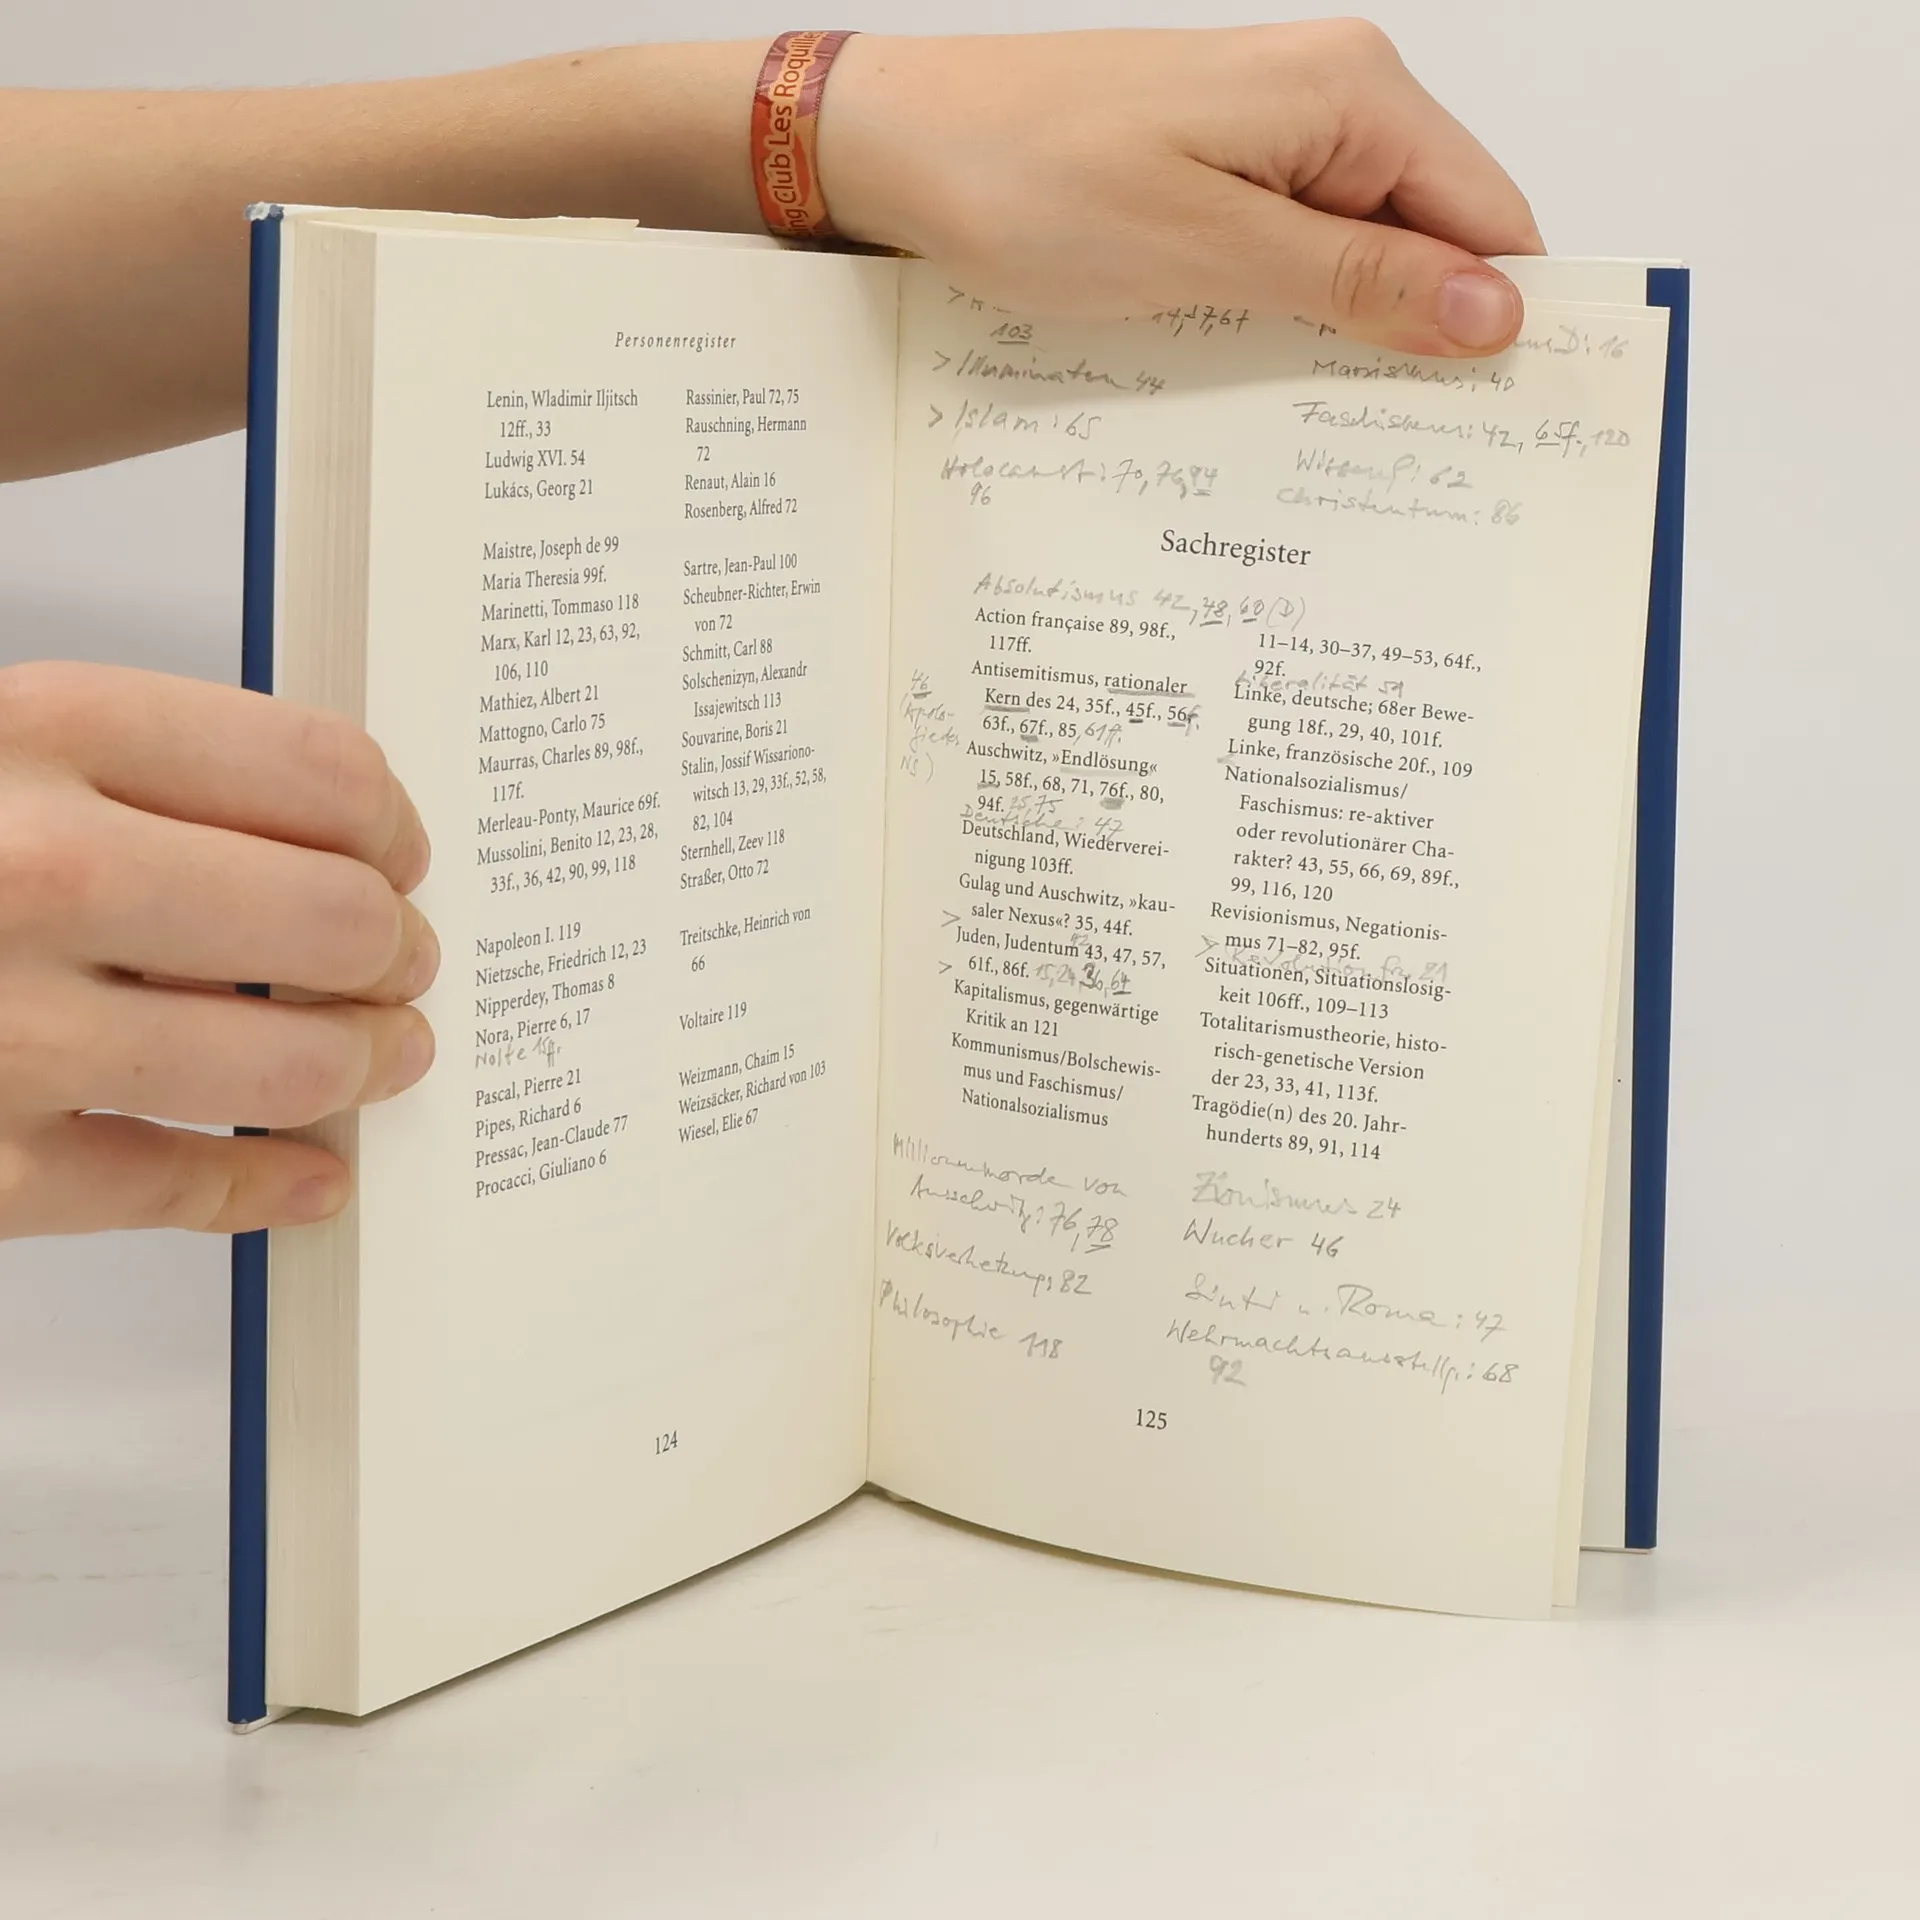 ing Club Les Roquille
Personenregister
Lenin, Wladimir Iljitsch
12ff., 33
Ludwig XVI. 54
Lukács, Georg 21
Maistre, Joseph de 99
Maria Theresia 99f.
Marinetti, Tommaso 118
Marx, Karl 12, 23, 63, 92,
106, 110
Mathiez, Albert 21
Mattogno, Carlo 75
Maurras, Charles 89, 98f.,
117f.
Merleau-Ponty, Maurice 69f.
Mussolini, Benito 12, 23, 28,
33f., 36, 42, 90, 99, 118
Napoleon I. 119
Nietzsche, Friedrich 12, 23
Nipperdey, Thomas 8
Nora, Pierre 6, 17
Nolte 15ff.
Pascal, Pierre 21
Pipes, Richard 6
Pressac, Jean-Claude 77
Procacci, Giuliano 6
Rassinier, Paul 72, 75
Rauschning, Hermann
72
Renaut, Alain 16
Rosenberg, Alfred 72
Sartre, Jean-Paul 100
Scheubner-Richter, Erwin
von 72
Schmitt, Carl 88
Solschenizyn, Alexandr
Issajewitsch 113
Souvarine, Boris 21
Stalin, Jossif Wissariono-
witsch 13, 29, 33f., 52, 58,
82, 104
Sternhell, Zeev 118
Straßer, Otto 72
Treitschke, Heinrich von
66
Voltaire 119
Weizmann, Chaim 15
Weizsäcker, Richard von 103
Wiesel, Elie 67
124
14, 17, 67
103
> Illuminaten 44
> Islam: 65
Holocaust: 70, 76, 94
96
D: 16
Marxismus: 40
Faschismus: 42, 65f., 120
62
Christentum: 86
Sachregister
Absolutismus 42, 48, 60 (D)
Action française 89, 98f.,
117ff.
Antisemitismus, rationaler
Kern des 24, 35f., 45f., 56f.
63f., 67f., 85, 61ff.
46
(Apolo-
gie des
NS)
Auschwitz, »Endlösung«
15, 58f., 68, 71, 76f., 80,
94f. 25, 75
Deutsche: 47
Deutschland, Wiederverei-
nigung 103ff.
Gulag und Auschwitz, »kau-
> saler Nexus«? 35, 44f.
Juden, Judentum 43, 47, 57,
> 61f., 86f. 15, 24, 36, 64
Kapitalismus, gegenwärtige
Kritik an 121
Kommunismus/Bolschewis-
mus und Faschismus/
Nationalsozialismus
Millionenmorde von
Ausschwitz: 76, 78
Volksverhetzung: 82
Philosophie 118
11–14, 30–37, 49–53, 64f.,
92f.
Liberalität 51
Linke, deutsche; 68er Bewe-
gung 18f., 29, 40, 101f.
Linke, französische 20f., 109
Nationalsozialismus/
Faschismus: re-aktiver
oder revolutionärer Cha-
rakter? 43, 55, 66, 69, 89f.,
99, 116, 120
Revisionismus, Negationis-
> mus 71–82, 95f.
Revolution fr. 21
Situationen, Situationslosig-
keit 106ff., 109–113
Totalitarismustheorie, histo-
risch-genetische Version
der 23, 33, 41, 113f.
Tragödie(n) des 20. Jahr-
hunderts 89, 91, 114
Zionismus 24
Wucher 46
Sinti u. Roma: 47
Wehrmachtsausstellg.: 68
92
125